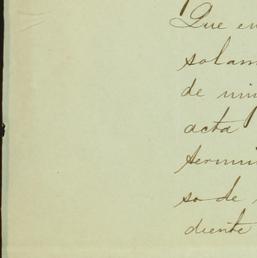 Que en
solam
de nin
acta
termin
so de
diente